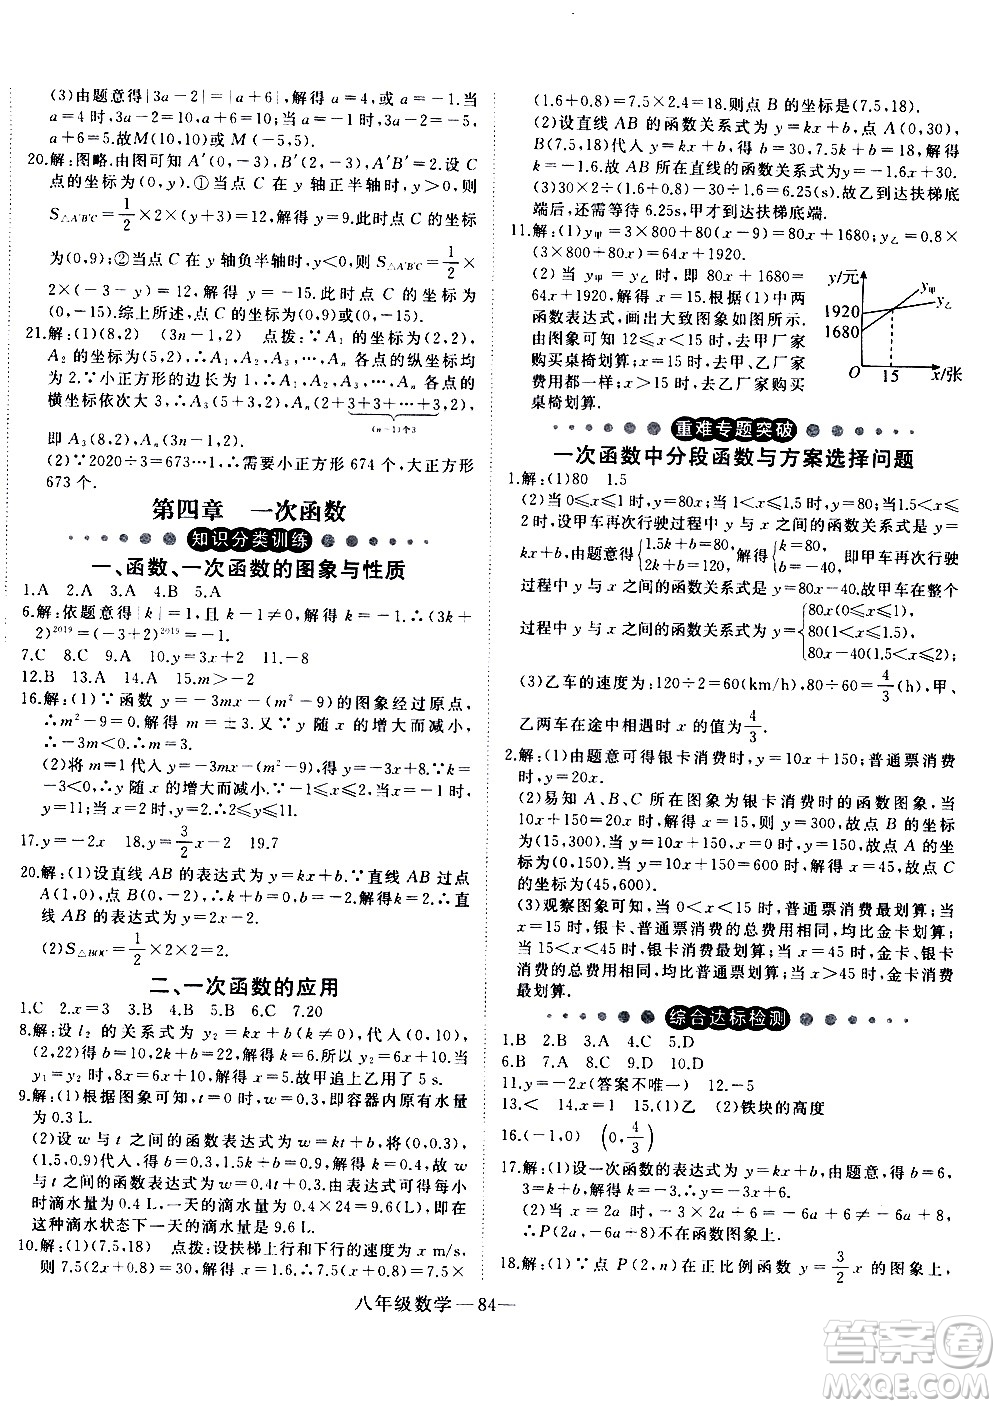 (3)由题意得|3a－2|=|a＋6|,解得 a=4,或 a=－1.当
a=4 时,3a－2=10,a＋6=10;当 a=－1 时,3a－2=－5,
a＋6=5.故M(10,10)或 M(－5,5).
20.解:图略,由图可知 A′(0,－3),B′(4,－3),A′B′=4.设 C
点的坐标为(0,y).①当点 C 在 y 轴正半轴时,y>0,则
S△A′B′C=1/2×2×(y＋3)=12,解得 y=9.此时点 C 的坐标
为(0,9);②当点 C 在 y 轴负半轴时,则 S△A′B′C=1/2×
2×(－3－y)=12,解得 y=－15.此时点 C 的坐标为
(0,－15).综上所述,点 C 的坐标为(0,9)或(0,－15).
21.解:(1)(8,2) (3n－1,2) 点拨:∵A₁ 的坐标为(2,2),
A₂ 的坐标为(5,2),∴A₁,A₂,A₃,…,Aₙ 各点的纵坐标均
为 2.∵小正方形的边长为 1,∴A₁,A₂,A₃,…,Aₙ 各点的
横坐标依次大 3,∴A₃(2＋3＋3,2),Aₙ(2＋3＋3＋…＋3,2),
(n－1)个3
即 A₃(8,2),Aₙ(3n－1,2).
(2)∵2020÷3=673…1,∴需要小正方形 674 个,大正方形
673 个.
第四章 一次函数
知识分类训练
一、函数、一次函数的图象与性质
1.A 2.A 3.A 4.B 5.A
6.解:依题意得|k|=1,且 k－1≠0,解得 k=－1.∴(3k＋
2)²⁰¹⁹=(－3＋2)²⁰¹⁹=－1.
7.C 8.C 9.A 10.y=3x＋2 11.－8
12.B 13.A 14.A 15.m>－2
16.解:(1)∵函数 y=－3mx－(m²－9)的图象经过原点,
∴m²－9=0,解得 m=±3.又∵y 随 x 的增大而减小,
∴－3m<0,∴m=3.
(2)将 m=1 代入 y=－3mx－(m²－9),得 y=－3x＋8.∵k=
－3<0,∴y 随 x 的增大而减小.∵2≤y≤6,∴2/3≤x≤2.
17.y=－2x 18.y=3/2x－2 19.7
20.解:(1)设直线 AB 的表达式为 y=kx＋b.∵直线 AB 过点
A(1,0),点 B(0,－2),∴k＋b=0,b=－2,解得k=2,∴直
线 AB 的表达式为 y=2x－2.
(2)S△BOC=1/2×2×2=2.
二、一次函数的应用
1.C 2.x=3 3.B 4.B 5.B 6.C 7.20
8.解:设 l₂ 的关系式为 y₂=kx＋b(k≠0),代入(0,10),
(2,22)得 b=10,2k＋b=22,解得 k=6.所以 y₂=6x＋10.当
y₁=y₂ 时,8x=6x＋10,解得 x=5.故甲追上乙用了 5 s.
9.解:(1)根据图象可知,t=0 时,w=0.3,即容器内原有水量
为 0.3 L.
(2)设 w 与 t 之间的函数表达式为 w=kt＋b,将(0,0.3),
(1.5,0.9)代入,得 b=0.3,1.5k＋b=0.9,解得 k=0.4,故 w
与 t 之间的函数表达式为 w=0.4t＋0.3.由解析式可得每小时
滴水量为 0.4 L,一天的滴水量为 0.4×24=9.6(L),即在
在这种滴水状态下一天的滴水量是 9.6 L.
10.解:(1)(7.5,18) 点拨:设扶梯上行和下行的速度为 x m/s,
则 7.5(2x＋0.8)=30,解得 x=1.6,∴7.5(x＋0.8)=7.5×
(1.6＋0.8)=7.5×2.4=18.则点 B 的坐标为(7.5,18).
(2)设直线 AB 的函数关系式为 y=kx＋b,点 A(0,30),
B(7.5,18)代入 y=kx＋b,得 b=30,7.5k＋b=18,解得
k=－1.6.故 AB 所在直线的函数关系式为 y=－1.6x＋30.
(3)30×2÷(1.6＋0.8)－30÷1.6=6.25(s).故乙到达扶梯底
端后,还需等待 6.25s,甲才到达扶梯底端.
11.解:(1)y甲=3×800＋80(x－9)=80x＋1680;y乙=0.8×
(3×800＋80x)=64x＋1920.
(2)当 y甲=y乙 时,即 80x＋1680=
64x＋1920,解得 x=15.根据(1)中两
函数表达式,画出大致图象如图所示.
由图象可知 12≤x<15 时,去甲厂家
购买桌椅划算;x=15 时,去甲、乙厂家
费用都一样;x>15 时,去乙厂家购买
桌椅划算.
y/元
y甲
y乙
1920
1680
O 15 x/张
重难专题突破
一次函数中分段函数与方案选择问题
1.解:(1)80 1.5
(2)当 0≤x≤1 时,y=80x;当 1<x≤1.5 时,y=80;当 1.5<x≤
2 时,设甲车再次行驶过程中 y 与 x 之间的函数关系式是 y=
kx＋b,由题意得{1.5k＋b=80,2k＋b=120,解得{k=80,b=－40,即甲车再次行驶
过程中 y 与 x 之间的函数关系式是 y=80x－40.故甲车在整个
过程中 y 与 x 之间的函数关系式为 y={80x(0≤x≤1),80(1<x≤1.5),80x－40(1.5<x≤2).
(3)乙车的速度为:120÷2=60(km/h),80÷60=4/3(h),甲、
乙两车在途中相遇时 x 的值为4/3.
2.解:(1)由题意可得银卡消费时,y=10x＋150;普通票消费时,
y=20x.
(2)易知 A、B、C 所在图象为银卡消费时的函数图象,当
10x＋150=20x 时,解得 x=15,则 y=300,故点 B 的坐标为
(15,300).当 x=0 时,y=10x＋150=150,故点 A 的坐标为
(0,150).当 y=10x＋150=600 时,解得 x=45,故点 C
的坐标为(45,600).
(3)观察图象可知,当 0<x<15 时,普通票消费最划算;当
x=15 时,银卡、普通票消费费用相同,均比金卡划算;当
15<x<45 时,银卡消费最划算;当 x=45 时,金卡、银卡消
费的费用相同,均比普通票划算;当 x>45 时,金卡消费
最划算.
综合达标检测
1.B 2.B 3.A 4.C 5.D
6.B 7.A 8.C 9.D 10.D
11.y=－2x(答案不唯一) 12.－5
13.< 14.x=1 15.(1)乙 (2)铁块的高度
16.(－1,0) (0,4/3)
17.解:(1)设一次函数的表达式为 y=kx＋b,由题意,得 b=6,
3=k＋b,解得 k=－3.∴该一次函数的表达式为 y=－3x＋6.
(2)当 x=2a 时,y=－3×2a＋6=－6a＋6≠－6a＋8,
∴P(2a,－6a＋8)不在函数图象上.
18.解:(1)∵点 P(2,n)在正比例函数 y=3/2x 的图象上,
八年级数学—84—
答案圈
MXQE.COM